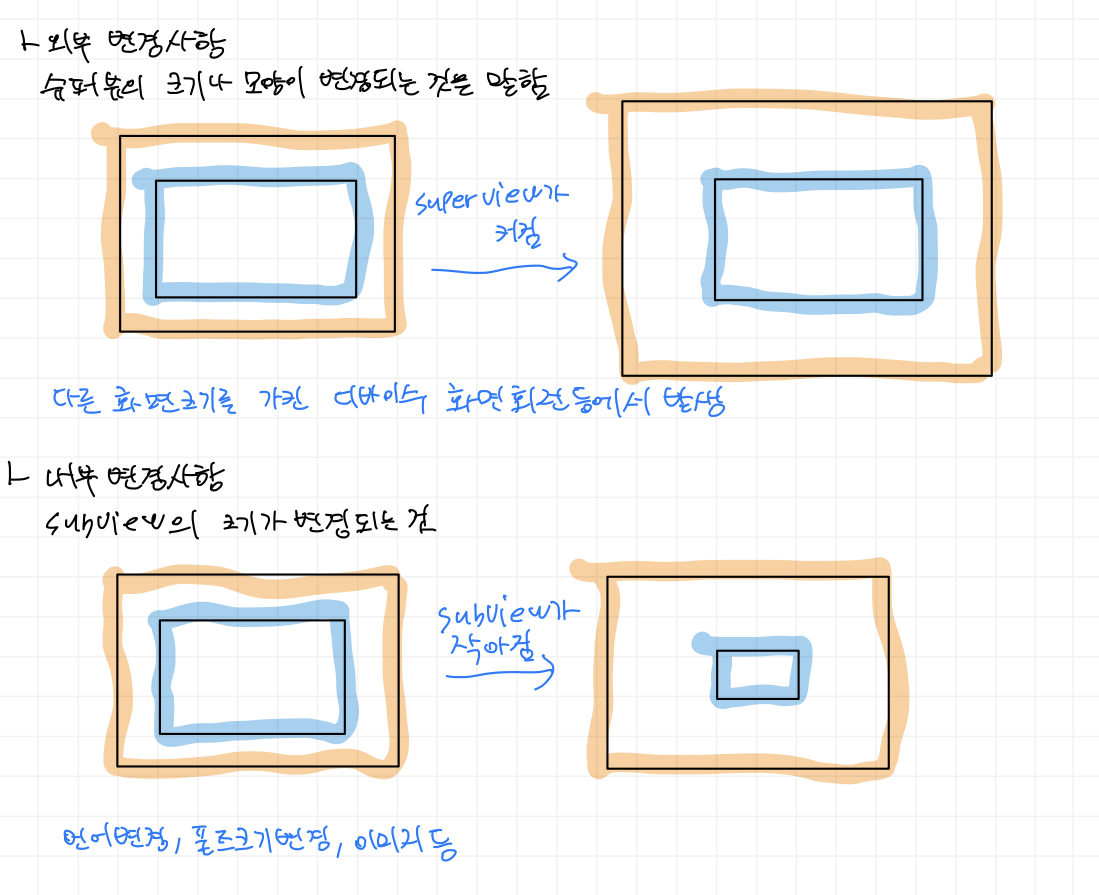 ㅏ 외부 변경사항
슈퍼뷰의 크기나 모양이 변경되는 것을 말함
superview가
커짐
다른 화면크기를 가진 디바이스 화면회전등에서 발생
ㅏ 내부 변경사항
subview의 크기가 변경되는 것
subview가
작아짐
언어변경, 폰트크기변경, 이미지 등